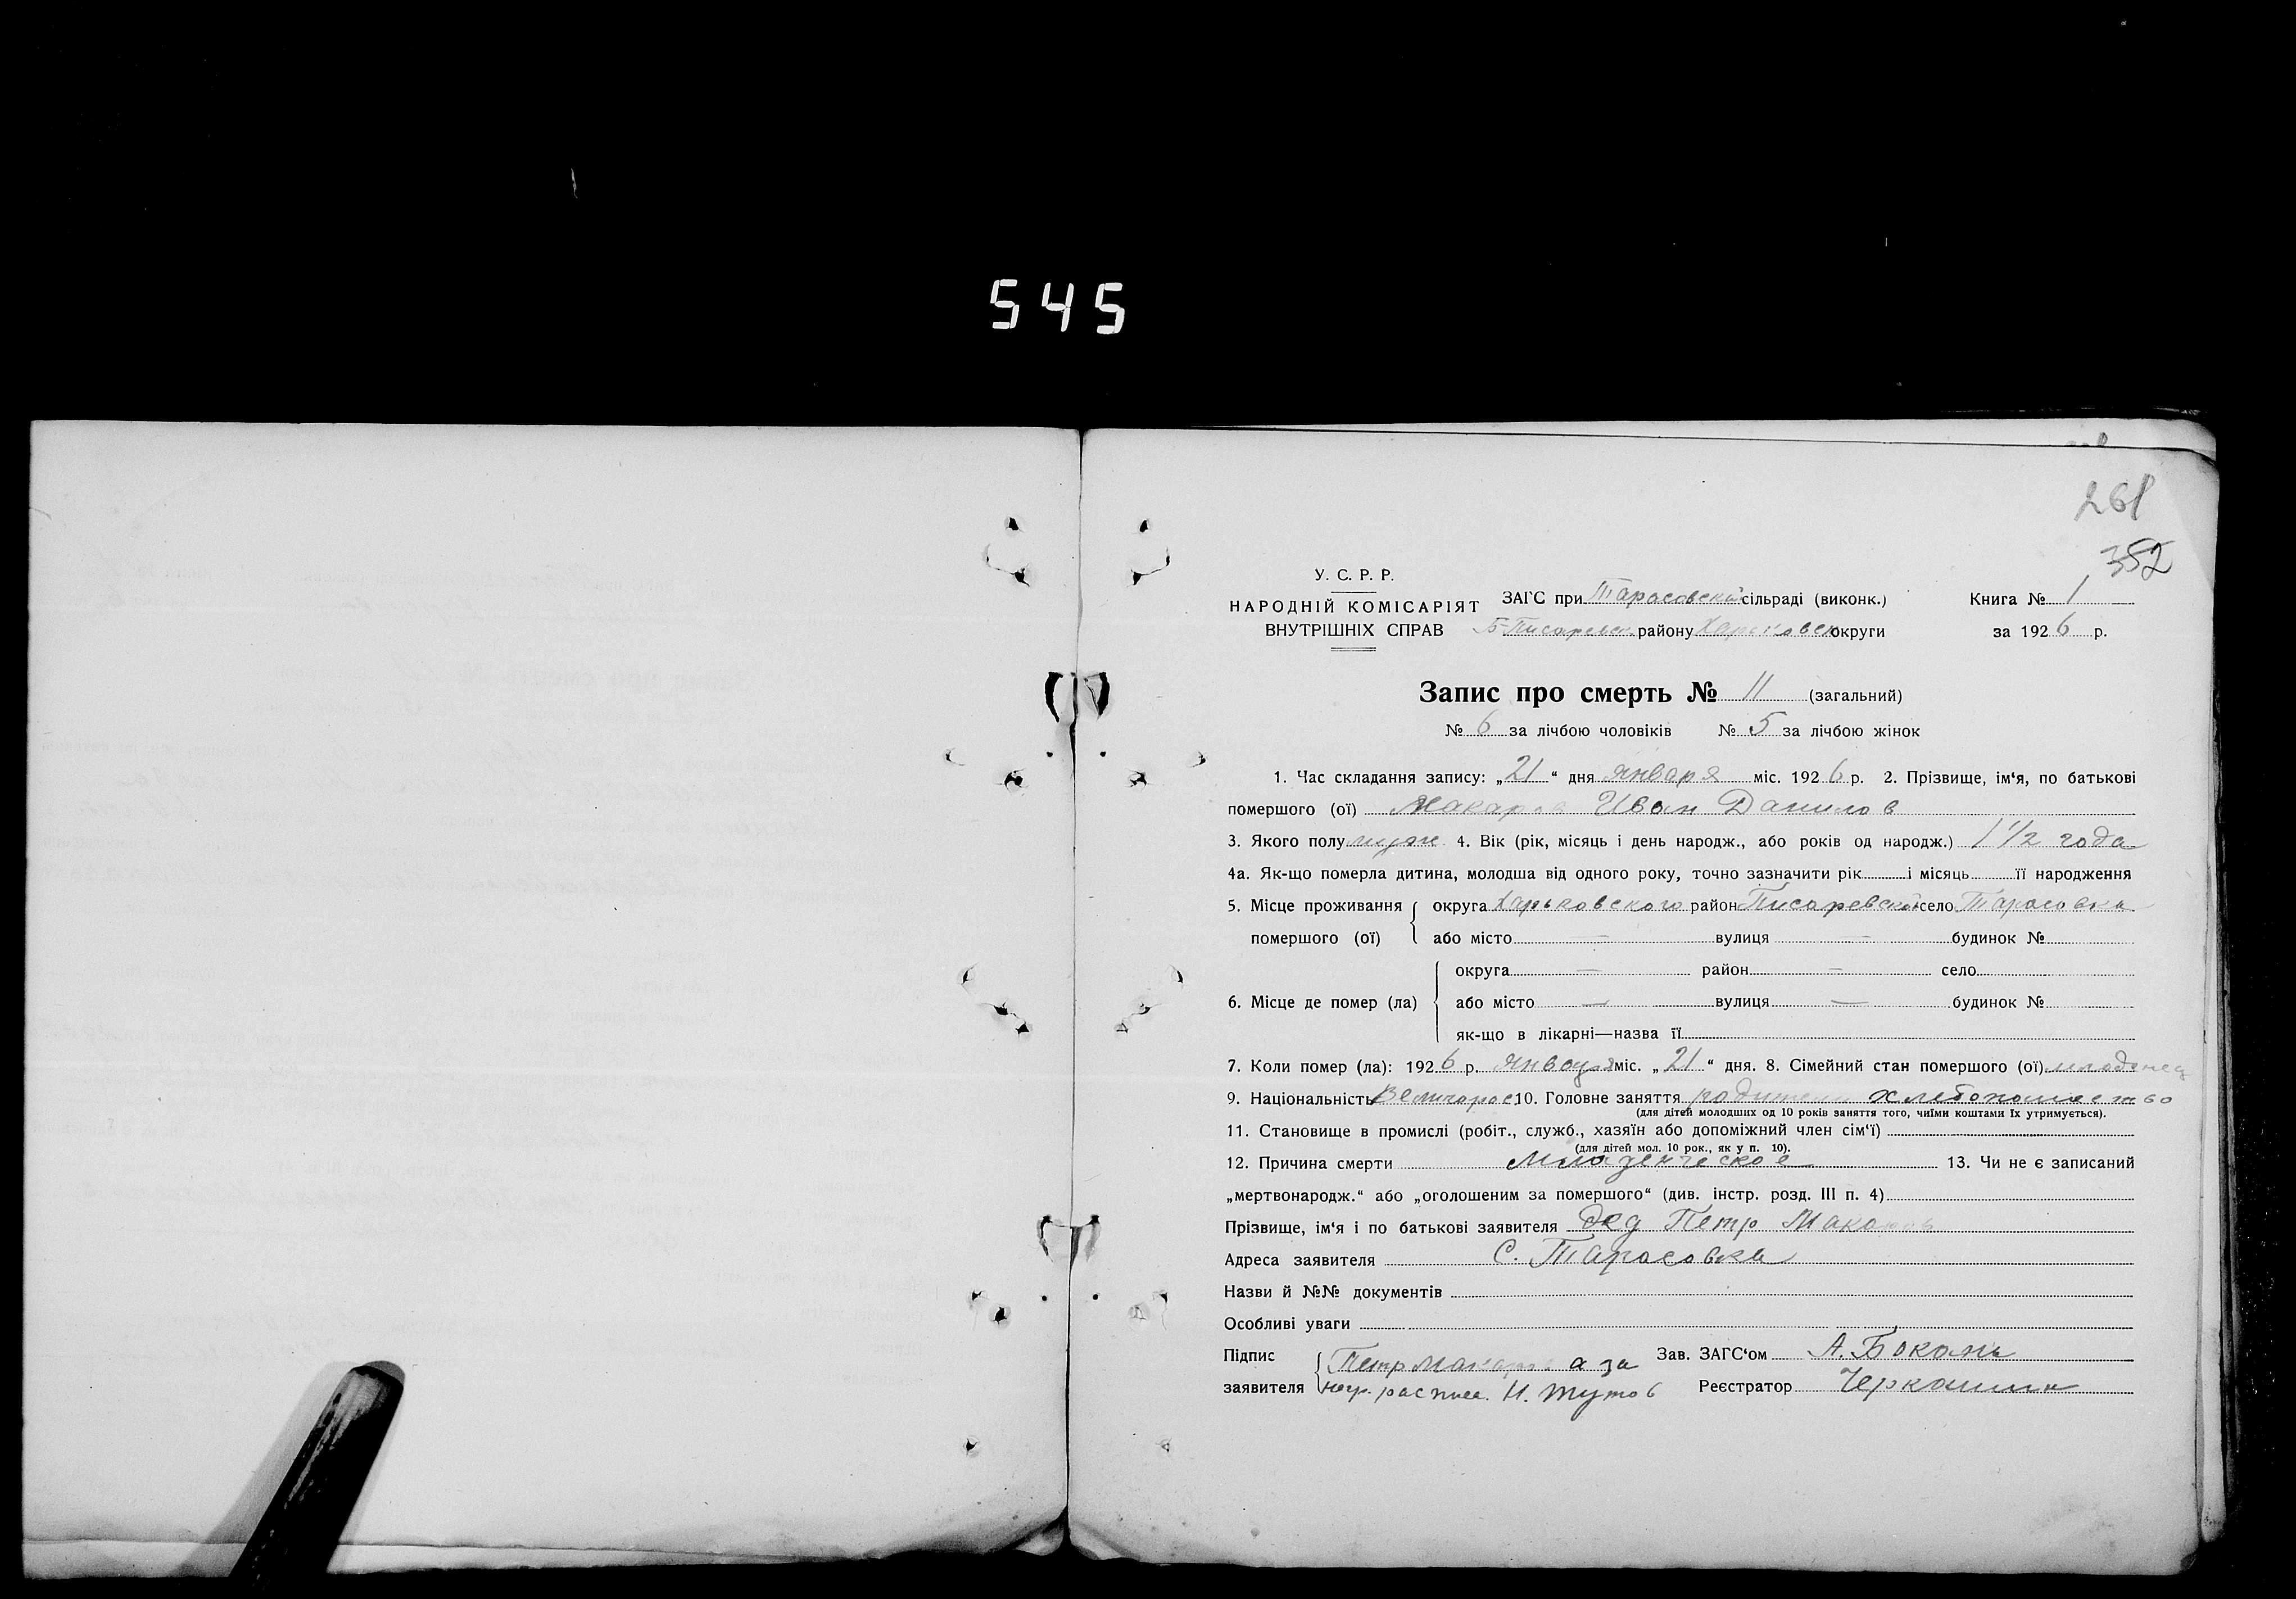 545
261
352
У. С. Р. Р.
НАРОДНІЙ КОМІСАРІЯТ
ВНУТРІШНІХ СПРАВ
ЗАГС при Тарасовской сільраді (виконк.)
Б-Писаревск. району Харьковск округи
Книга № 1
за 1926 р.
Запис про смерть № 11 (загальний)
№ 6 за лічбою чоловіків № 5 за лічбою жінок
1. Час складання запису: „21“ дня января міс. 1926 р. 2. Прізвище, ім‘я, по батькові
помершого (ої) Макаров Иван Данилов
3. Якого полу муж. 4. Вік (рік, місяць і день народж., або років од народж.) 1 1/2 года
4а. Як-що померла дитина, молодша від одного року, точно зазначити рік і місяць її народження
5. Місце проживання округа Харьковского район Писаревской село Тарасовка
помершого (ої) або місто — вулиця — будинок №
округа — район — село
6. Місце де помер (ла) або місто — вулиця — будинок №
як-що в лікарні—назва її
7. Коли помер (ла): 1926 р. января міс. „21“ дня. 8. Сімейний стан помершого (ої) младенец
9. Національність Великорос. 10. Головне заняття родители хлебопашество
(для дітей молодших од 10 років заняття того, чиїми коштами їх утримується).
11. Становище в промислі (робіт., служб., хазяїн або доміжний член сім‘ї)
(для дітей мол. 10 рок., як у п. 10).
12. Причина смерти Младенческое 13. Чи не є записаний
„мертвонародж.“ або „оголошеним за помершого“ (див. інстр. розд. III п. 4)
Прізвище, ім‘я і по батькові заявителя дед Петр Макаров
Адреса заявителя С. Тарасовка
Назви й №№ документів
Особливі уваги
Підпис Петр Макаров а за Зав. ЗАГС‘ом А. Бокань
заявителя негр. распис. И. Тутов Реєстратор Черкашин